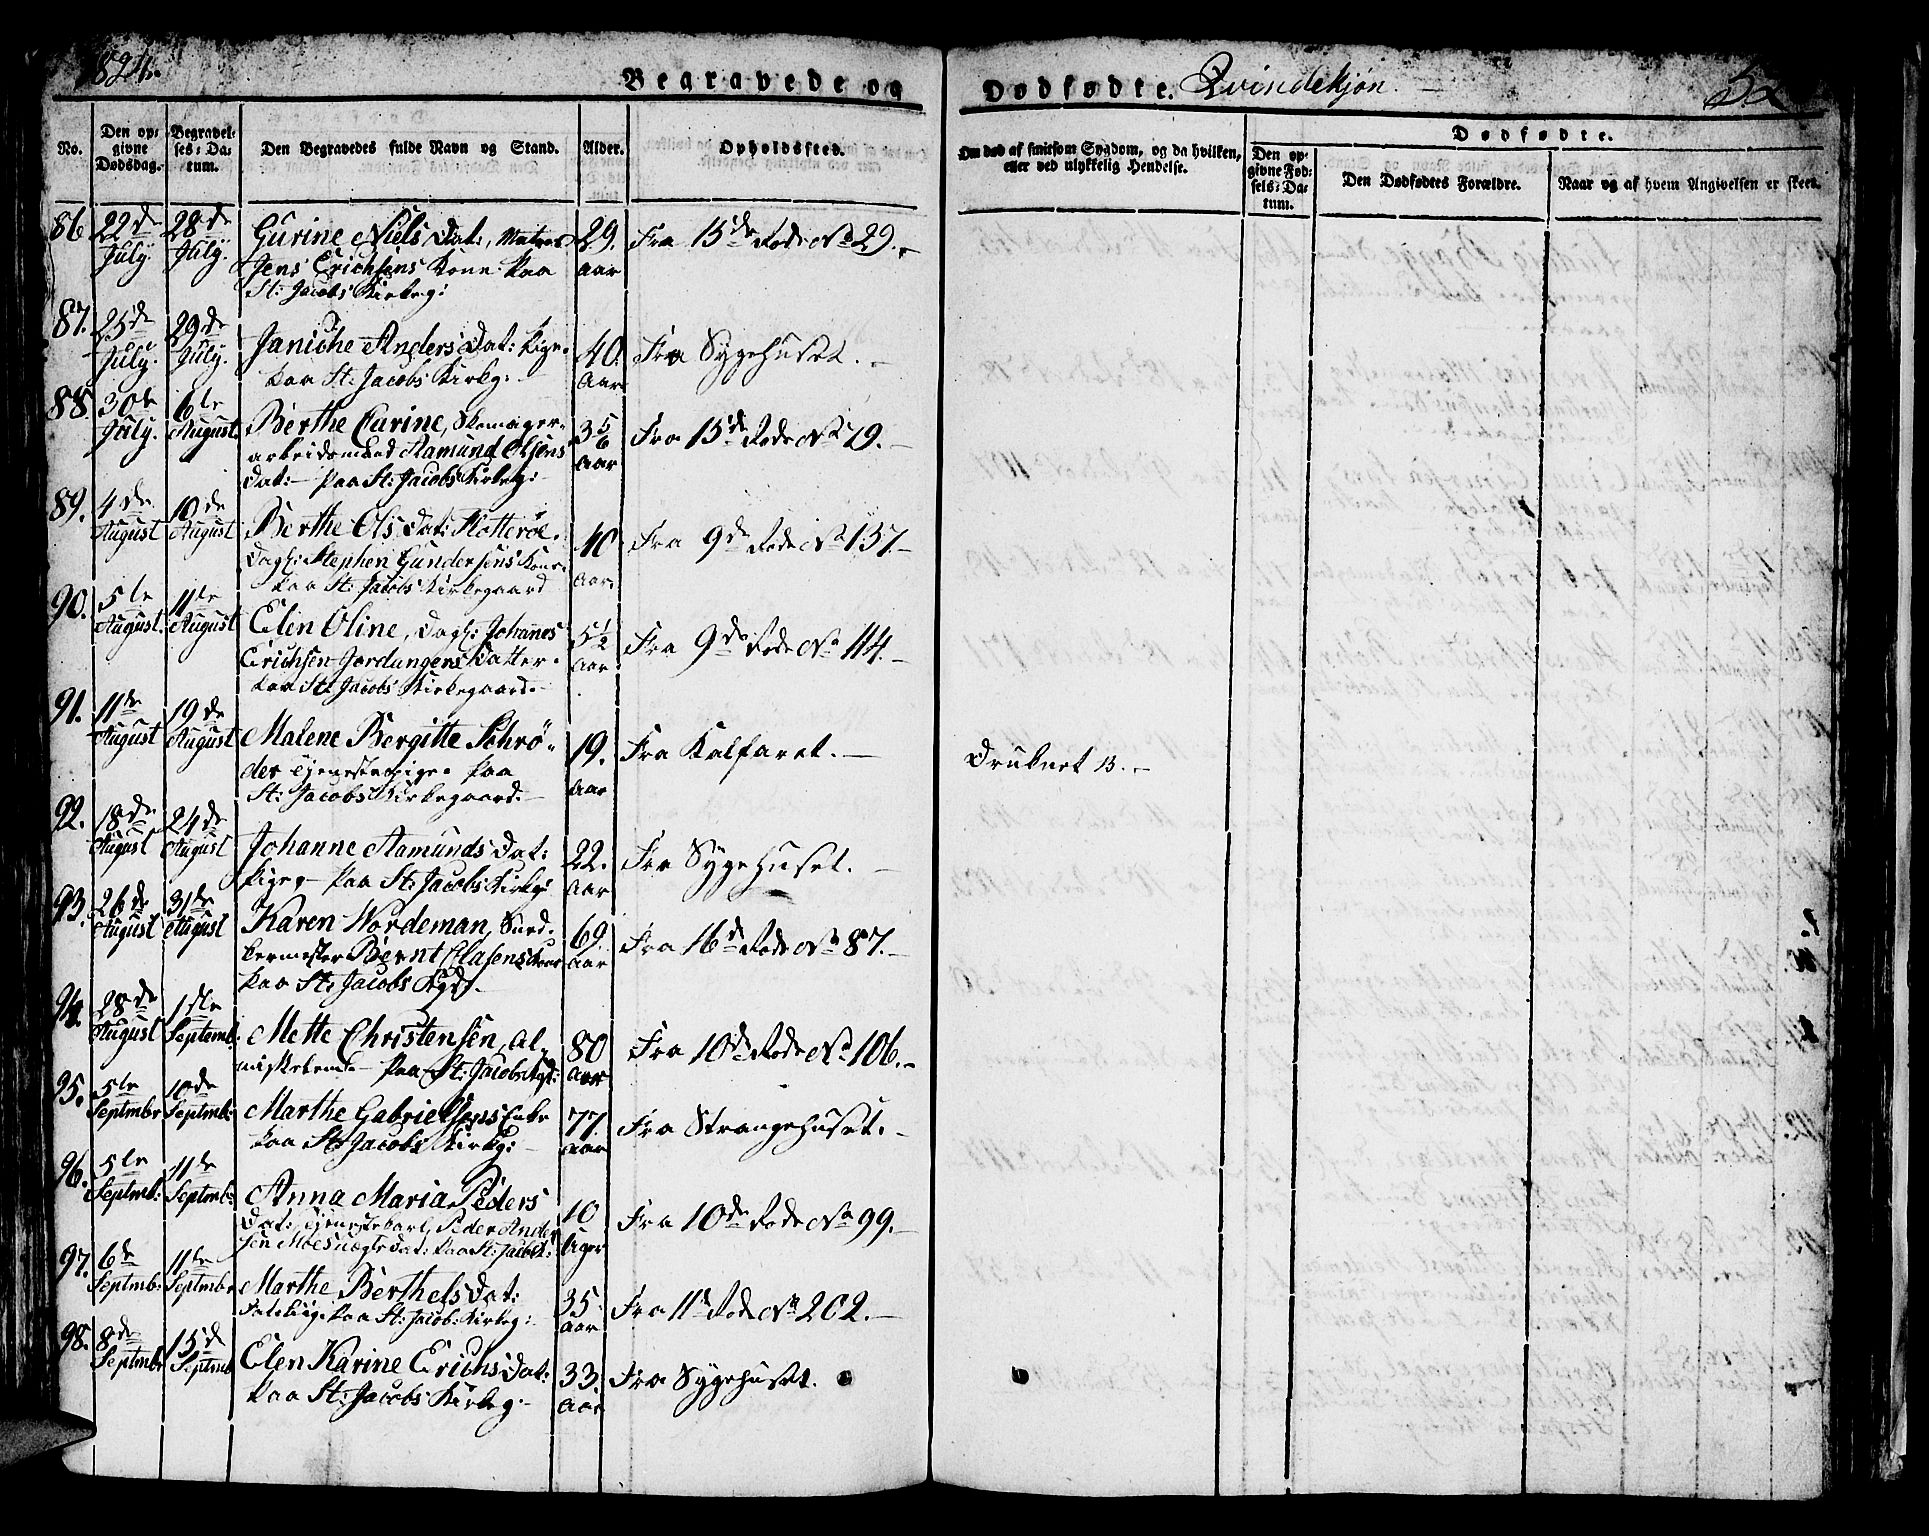 1824.
Begravede og
Dødfødte. Qvindekjøn.
52
No.
Den op-
givne
Dødsdag.
Begravel-
ses-Da-
tum.
Den Begravedes fulde Navn og Stand.
Alder.
Opholdssted.
Om død af smitsom Sygdom, og da hvilken,
eller ved ulykkelig Hendelse.
Dødfødte.
Den op-
givne Fød-
sels-Da-
tum.
Den Dødfødtes Forældre.
Naar og af hvem Angivelsen er skeet.
86 22de July. 28de July. Gurine Niels Dat:, Matros
Jens Erichsens Kone. Paa
St: Jacobs Kirkeg:
29. aar
Fra 15de Rode No 29.
87. 25de July. 29de July. Janiche Anders Dat: Pige.
Paa St: Jacobs Kirkg:
40. aar
Fra Sygehuset.
88. 30te July. 6te August. Berthe Carine, Skomager-
arbeidsmand Aamund Olsens
Dat: Paa St: Jacobs Kirkeg:
3 5/6 aar
Fra 15de Rode No 79.
89. 4de August 10de August Berthe Ols Dat: Flotterøe.
Dagl: Stephen Gundersens Kone.
Paa St: Jacobs Kirkegaard
40 aar.
Fra 9de Rode No 157.
90. 5te August. 11te August Elen Oline, Dagl: Johannes
Erichsen Jordungens Datter.
Paa St: Jacobs Kirkegaard.
5 1/2 aar
Fra 9de Rode No 114.
91. 11te August 19de August Malene Bergitte Schrø-
der Tjenestepige. Paa
St: Jacobs Kirkegaard.
19. aar
Fra Kalfaret.
Druknet 13.
92. 18de August 24de August Johanne Aamunds Dat:
Pige, Paa St: Jacobs Kirkg:
22. aar
Fra Sygehuset.
93. 26de August 31te August Karen Nordeman, Sned-
kermester Bernt Clasens Kone
Paa St: Jacobs Kgd.
69. aar
Fra 16de Rode No 87.
94. 28de August 1ste Septemb: Mette Christensen, Al-
misselem. Paa St: Jacobs Kgd:
80 aar
Fra 10de Rode No 106.
95. 5te Septmbr 10de Septmb: Marthe Gabrielsens Enke
Paa St: Jacobs Kirkg:
77. aar
Fra Strangehuset.
96. 5te Septmb: 11te Septmb: Anna Maria Peders
Dat:, Tjenestekarl Peder Ander
sen Moesnægts Dat: Paa St: Jacob:
10 Uger
Fra 10de Rode No 99.
97. 6te Septmb: 11te Septmbr Marthe Berthels Dat:
Paa St: Jacobs Kirkeg:
35 aar
Fra 11te Rode No 202.
98. 8de Septmbr 15de Septmb Elen Karine Erichs Dat:
Paa St: Jacobs Kirkeg:
33. aar
Fra Sygehuset.